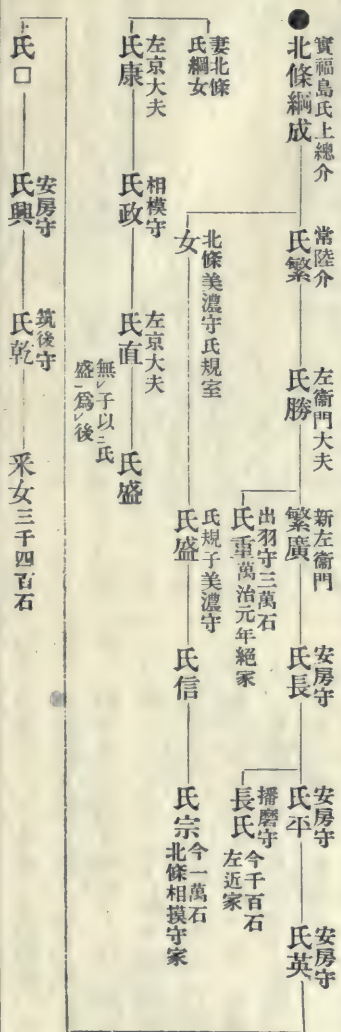 ●北條綱成
實福島氏上總介
妻北條
氏綱女
氏繁
常陸介
氏勝
左衞門大夫
繁廣
新左衞門
氏長
安房守
氏平
安房守
氏英
安房守
氏重
出羽守三萬石
萬治元年絕家
長氏
播磨守
今千百石
左近家
女
北條美濃守氏規室
氏盛
氏規子美濃守
氏信
氏宗
今一萬石
北條相摸守家
氏康
左京大夫
氏政
相模守
氏直
左京大夫
無レ子以二氏
盛一爲レ後
氏盛
氏□
氏興
安房守
氏乾
筑後守
釆女三千四百石